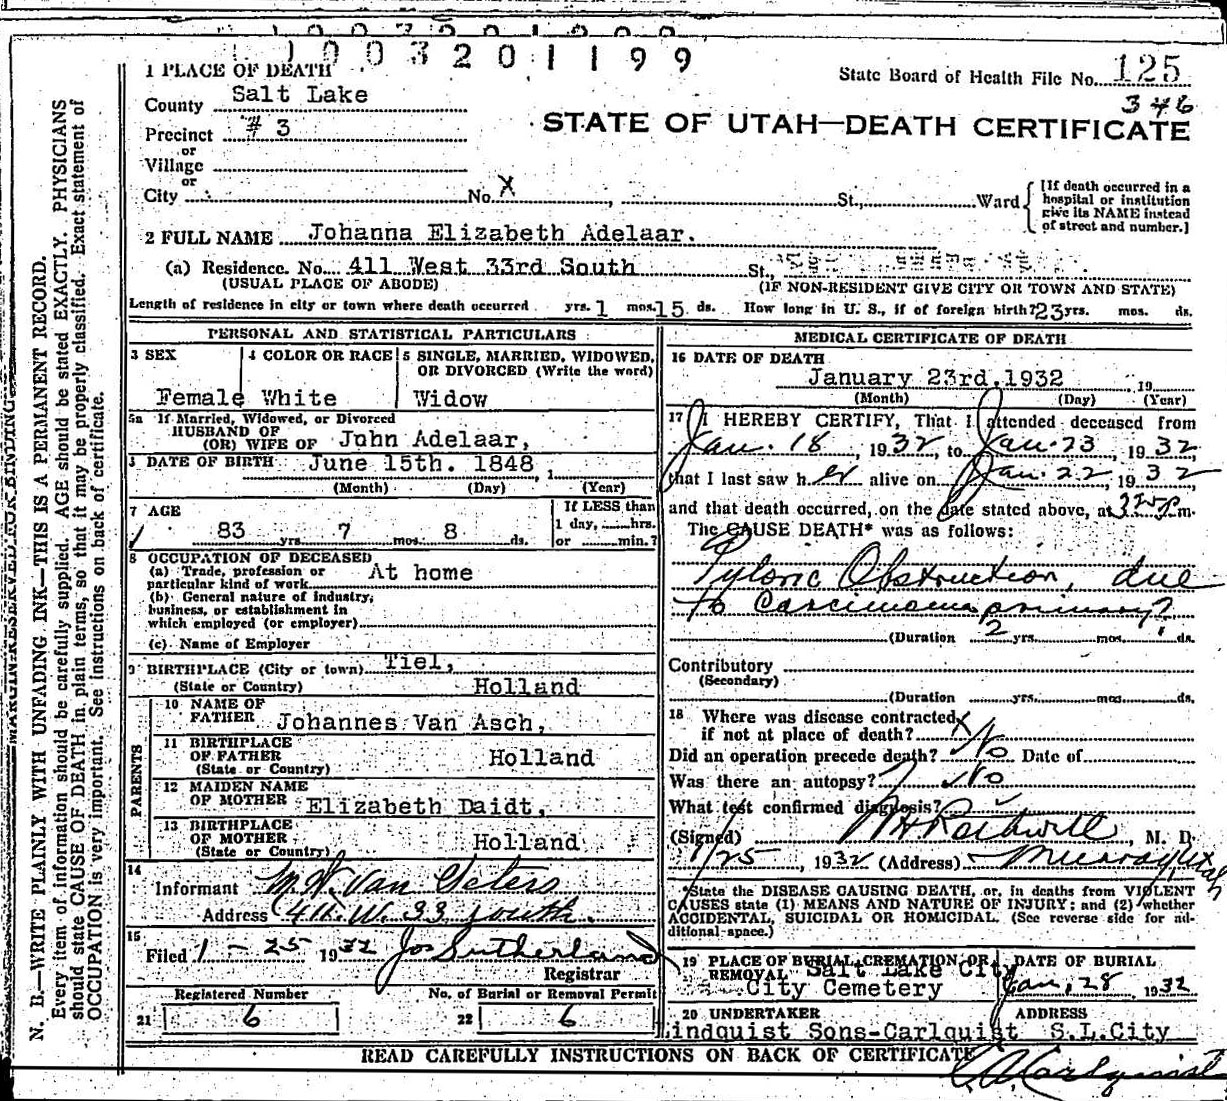 1003201199
State Board of Health File No. 125
346
1 PLACE OF DEATH
County Salt Lake
Precinct #3
or
Village
or
City No. X St., Ward
[If death occurred in a
hospital or institution
give its NAME instead
of street and number.]
STATE OF UTAH—DEATH CERTIFICATE
2 FULL NAME Johanna Elizabeth Adelaar.
(a) Residence. No. 411 West 33rd South St.,
(USUAL PLACE OF ABODE) (IF NON-RESIDENT GIVE CITY OR TOWN AND STATE)
Length of residence in city or town where death occurred yrs. 1 mos. 15 ds. How long in U. S., if of foreign birth? 23 yrs. mos. ds.
PERSONAL AND STATISTICAL PARTICULARS
3 SEX
Female
4 COLOR OR RACE
White
5 SINGLE, MARRIED, WIDOWED,
OR DIVORCED (Write the word)
Widow
5a If Married, Widowed, or Divorced
HUSBAND OF
(OR) WIFE OF John Adelaar,
DATE OF BIRTH June 15th. 1848, 1
(Month) (Day) (Year)
7 AGE
83 yrs. 7 mos. 8 ds.
If LESS than
1 day, hrs.
or min.?
8 OCCUPATION OF DECEASED
(a) Trade, profession or
particular kind of work At home
(b) General nature of industry,
business, or establishment in
which employed (or employer)
(c) Name of Employer
9 BIRTHPLACE (City or town) Tiel,
(State or Country) Holland
PARENTS
10 NAME OF
FATHER Johannes Van Asch,
11 BIRTHPLACE
OF FATHER
(State or Country) Holland
12 MAIDEN NAME
OF MOTHER Elizabeth Daidt,
13 BIRTHPLACE
OF MOTHER
(State or Country) Holland
14
Informant M. W. Van Geters
Address 411. W. 33 South.
15
Filed 1-25 1932 Jos Sutherland
Registrar
Registered Number
21 6
No. of Burial or Removal Permit
22 6
MEDICAL CERTIFICATE OF DEATH
16 DATE OF DEATH
January 23rd, 1932, 19
(Month) (Day) (Year)
17 I HEREBY CERTIFY, That I attended deceased from
Jan. 18, 1932, to Jan. 23, 1932,
that I last saw her alive on Jan. 22, 1932
and that death occurred, on the date stated above, at m.
The CAUSE DEATH* was as follows:
Pyloric Obstruction, due
to Carcinoma primary?
(Duration 2 yrs. mos. ds.
Contributory
(Secondary)
(Duration yrs. mos. ds.
18 Where was disease contracted
if not at place of death? X
Did an operation precede death? No Date of
Was there an autopsy? No
What test confirmed diagnosis?
(Signed) , M. D.
1/25, 1932 (Address) Murray, Utah
*State the DISEASE CAUSING DEATH, or, in deaths from VIOLENT
CAUSES state (1) MEANS AND NATURE OF INJURY; and (2) whether
ACCIDENTAL, SUICIDAL OR HOMICIDAL. (See reverse side for ad-
ditional space.)
19 PLACE OF BURIAL, CREMATION, OR
REMOVAL Salt Lake City
City Cemetery
DATE OF BURIAL
Jan. 28, 1932
20 UNDERTAKER
Lindquist Sons-Carlquist
ADDRESS
S.L.City
READ CAREFULLY INSTRUCTIONS ON BACK OF CERTIFICATE
MARGIN RESERVED FOR BINDING
N. B.—WRITE PLAINLY WITH UNFADING INK—THIS IS A PERMANENT RECORD.
Every item of information should be carefully supplied. AGE should be stated EXACTLY. PHYSICIANS
should state CAUSE OF DEATH in plain terms, so that it may be properly classified. Exact statement of
OCCUPATION is very important. See instructions on back of certificate.